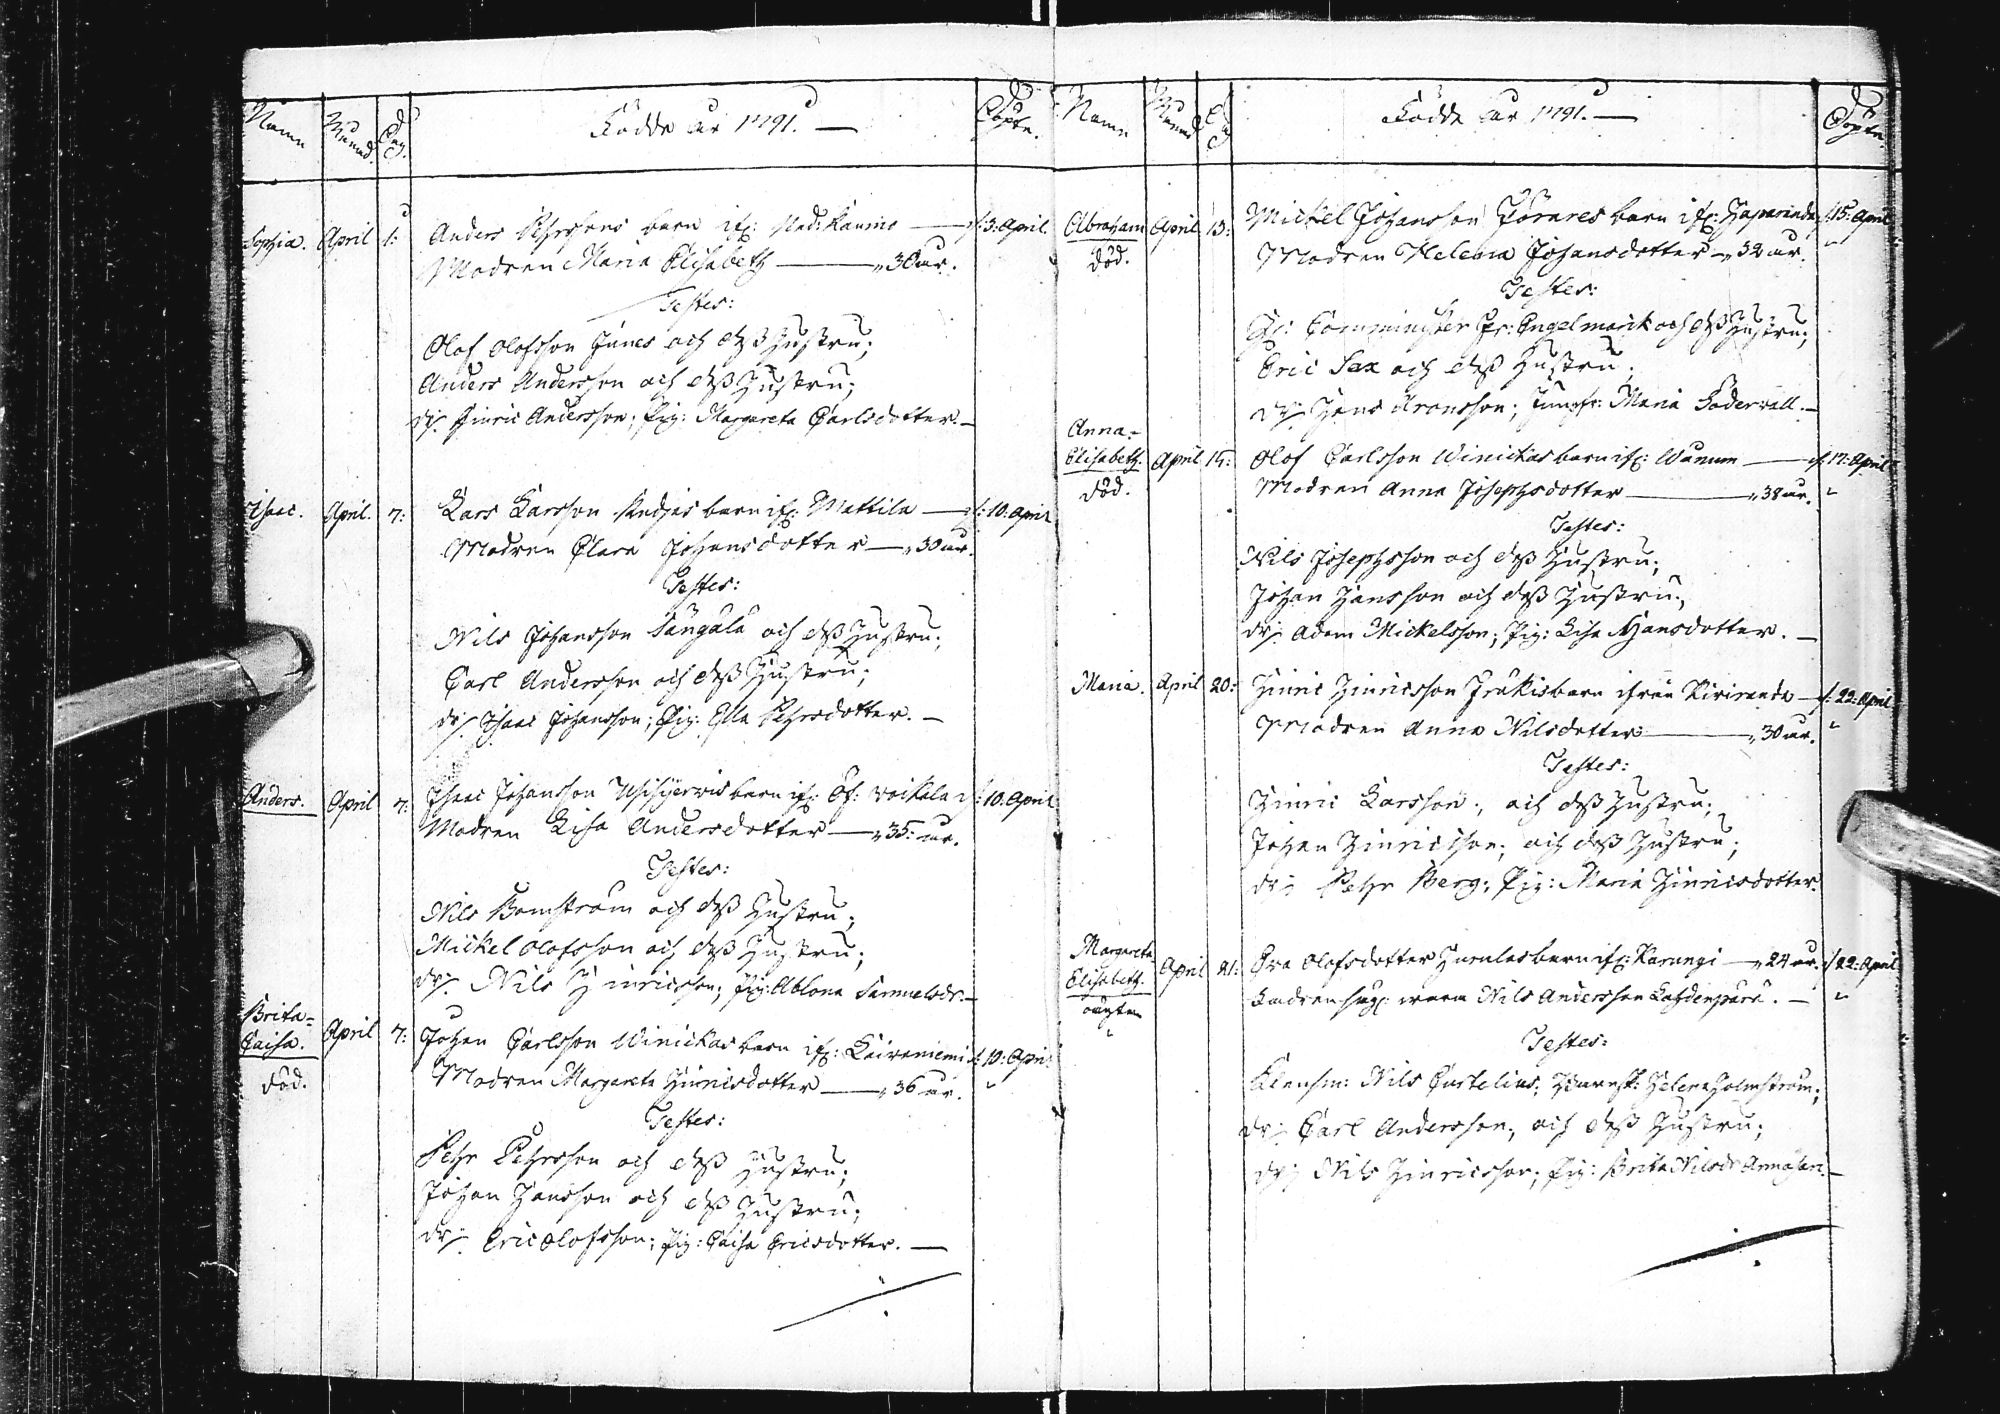 Namn Månad Dag. Födde År 1791. — Döpte.
Sophia. April 1: Anders Pehrssons barn ifr: Ned: Raumo — d: 3: April
Modren Maria Elisabeth — „ 30 år.
Testes:
Olof Olofsson Junes och deß Hustru;
Anders Andersson och deß Hustru;
dr: Hinric Andersson; Pig: Margareta Carlsdotter. —
Isaac. April. 7: Lars Larsson barn ifr: Mattila — d: 10: April
Modren Clara Johansdotter — „ 30 år.
Testes:
Nils Johansson Sångala och deß Hustru;
Carl Andersson och deß Hustru;
dr: Isaac Johansson; Pig: Ella Pehrsdotter. —
Anders. April 7: Isaac Johansson barn ifr: Öf: Woikala d: 10. April
Modren Lisa Andersdotter — „ 35: år.
Testes:
Nils Bomström och deß Hustru;
Mickel Olofsson och deß Hustru;
dr: Nils Hinricsson; Pig: Ablona Samuelsdr. —
Brita-
Caisa. April 7: Johan Carlsson Winickas barn ifr: Laivaniemi d: 10: April
död. Modren Margareta Hinricsdotter — „ 36 år. „
Testes:
Pehr Pehrsson och deß Hustru;
Johan Hansson och deß Hustru;
dr: Eric Olofsson; Pig: Caisa Ericsdotter. —
Namn Månad Dag Födde År 1791. — Döpte.
Abraham April 13: Mickel Johansson Förares barn ifr: Haparanda d: 15: April
död. Modren Helena Johansdotter — „ 32 år. „
Testes:
Hr: Comminister Er: Engelmark och deß Hustru;
Eric Sax och deß Hustru;
dr: Hans Aronsson; Jungfr: Maria Söderwall. —
Anna-
Elisabeth. April 15: Olof Carlsson Winickas barn ifr: Wånum — d: 17: April
död. Modren Anna Josephsdotter — „ 38 år. „
Testes:
Nils Josephsson och deß Hustru;
Johan Hansson och deß Hustru;
dr: Adam Mickelsson; Pig: Lisa Hansdotter. —
Maria. April 20: Hinric Hinricsson barn ifrån Kiviranda — d: 22: April
Modren Anna Nilsdotter — „ 30 år. „
Testes:
Hinric Larsson; och deß Hustru;
Johan Hinricsson; och deß Hustru;
dr: Pehr Berg; Pig: Maria Hinricsdotter.
Margareta
Elisabeth. April 21: Eva Olofsdotter barn ifr: Karungi — „ 24 år. d: 22: April
oägta Fadren säg: wara Nils Andersson — „
„
Testes:
Länsm: Nils Curtelius; Helena Holmström;
dr: Carl Andersson; och deß Hustru;
dr: Nils Hinricsson; Pig: Brita Nilsdr —